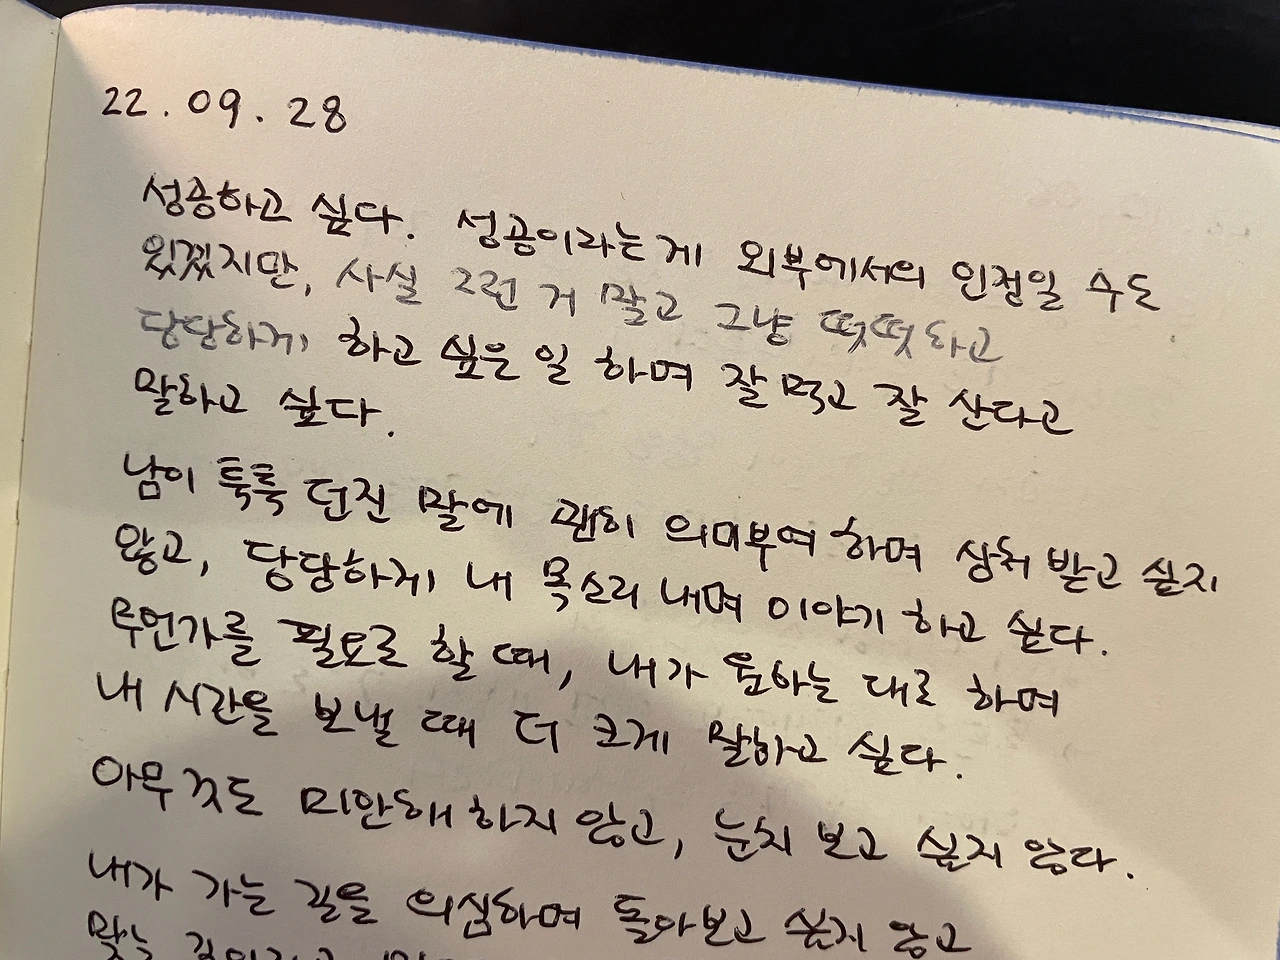 22.09.28
성공하고 싶다. 성공이라는게 외부에서의 인정일 수도
있겠지만, 사실 그런 거 말고 그냥 떳떳하고
당당하게 하고 싶은 일 하며 잘 먹고 잘 산다고
말하고 싶다.
남이 툭툭 던진 말에 괜히 의미부여 하며 상처 받고 싶지
않고, 당당하게 내 목소리 내며 이야기 하고 싶다.
무언가를 필요로 할 때, 내가 원하는 대로 하며
내 시간을 보낼 때 더 크게 말하고 싶다.
아무것도 미안해 하지 않고, 눈치 보고 싶지 않다.
내가 가는 길을 의심하며 돌아보고 싶지 않고
맞는